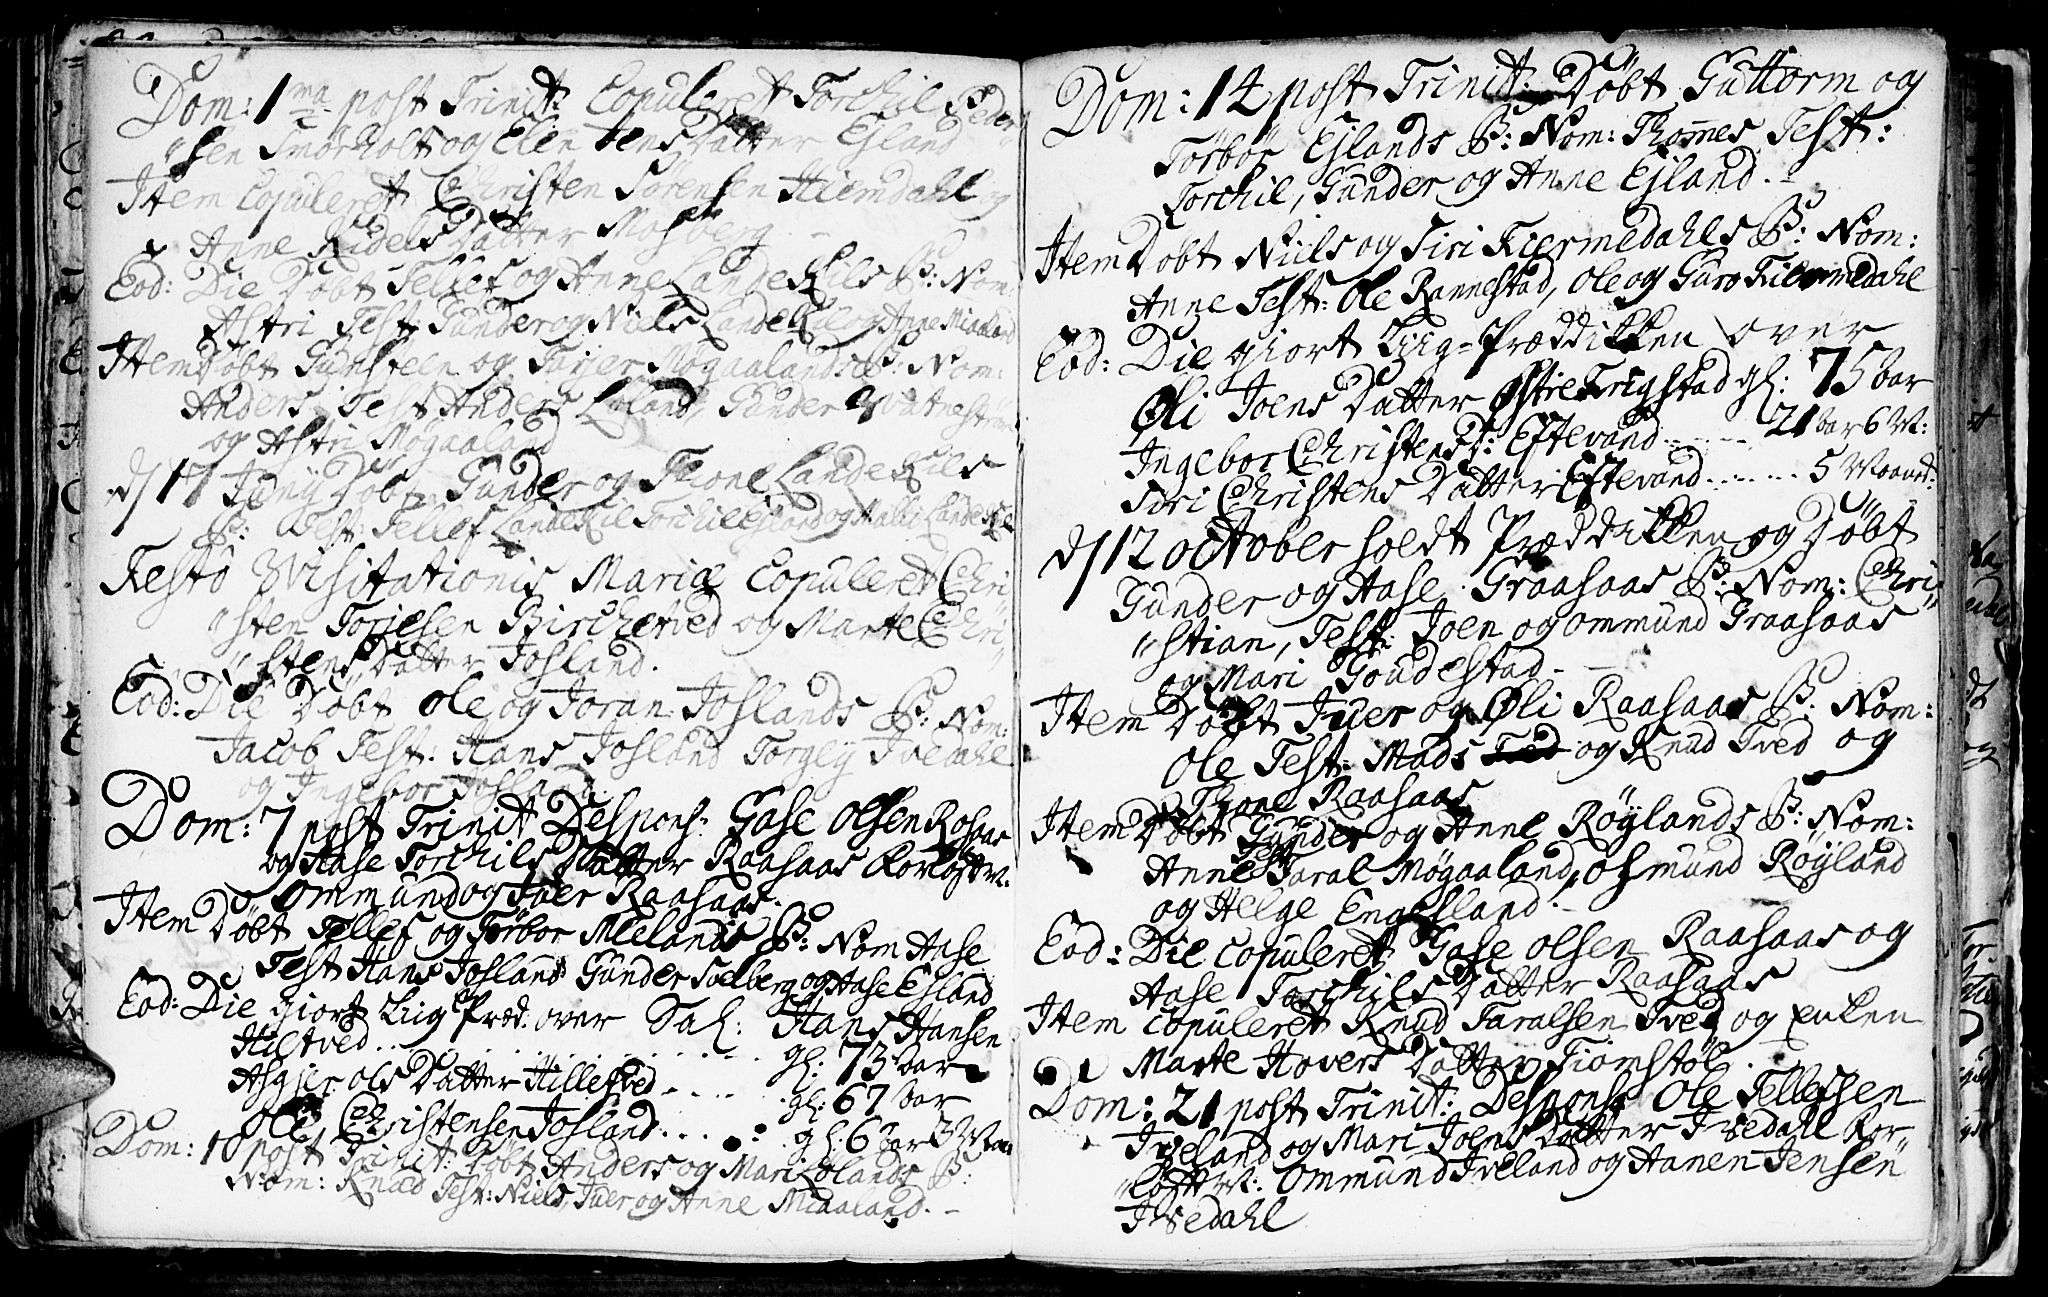 Dom: 1ma post Trinit: Copuleret Torchil Peder
"sen Smørholt og Elen Jens Datter Ejland
Item Copuleret Christen Sørensen Hiemdahl og
Anne Kidels Datter Mosberg
Eod: Die Døbt Tellef og Anne LandeKils B: Nom:
Astri Test: Gunder og Niels LandeKil og Anne Miaaland
Item Døbt Gunsteen og Tarjer Møgaalands B: Nom:
Anders, Test Anders Løland, Gunder
og Astri Møgaaland
d/ 17 Junÿ Døbt Gunder og Thone LandeKils
B: Test: Tellef LandeKil Torchil Ejland og Malli LandeKil
Festo Visitationis Mariæ Copuleret Chri
"sten Torjesen Birchetved og Marte Chri
"stens Datter Josland.
Eod: Die Døbt Ole og Joran Joslands B: Nom:
Jacob Test: Hans Josland Torgey Ivedahl
og Ingebor Josland
Dom: 7 post Trinit Despons: Gase Olsen Rosaas
og Aase Torchils Datter Raasaas
Ommund og Iver Raasaas.
Item Døbt Tellef og Tørbor Mielands B: Nom Aase
Test Hans Josland Gunder Solberg og Aase Ejsland
Eod: Die giort Liig Præd: over Sal: Hans Hansen
Hiltved . . . . . . gl: 73 aar
Asgjer Ols Datter Hillestved . . . . gl: 67 aar
Ole Christensen Josland . . . . gl: 6 aar 3
Dom: 10 post Trinit: Døbt Anders og Mari Lølands B:
Nom: Knud Test: Niels, Iver og Anne Miaaland. –
Dom: 14 post Trinit: Døbt Guttorm og
Tørbor Ejlands B: Nom: Thomes Test:
Torchil, Gunder og Anne Ejland. –
Item Døbt Niels og Siri Kiermedahls B: Nom:
Anne Test: Ole Rannestad, Ole og Guro Kiermedahl
Eod: Die giort Liig-Præddikken over
Øli Joens Datter Østre Trigstad gl: 75 aar
Ingebor Christens D: Eftevand . . . . 21 aar 6 M:
Siri Christens Datter Eftevand . . . . 5 Maaned:
d/ 12 October holdt Præddikken og Døbt
Gunder og Aase Graasaas B: Nom: Chri"
"stian, Test: Joen og Ommund Graasaas
og Mari Goudestad –
Item Døbt Iuer og Øli Raasaas B: Nom:
Ole Test: Mads Tved og Knud Tved og
Thone Raasaas
Item Døbt Gunder og Anne Røylands B: Nom:
Anne Test Taral Møgaaland, Osmund Røyland
og Helge Engesland. –
Eod: Die copuleret Gase Olsen Raasaas og
Aase Torchils Datter Raasaas
Item copuleret Knud Taralsen Tved og Enken
Marte Hovers Datter Fiømstøl.
Dom: 21 post Trinit: Despons: Ole Tellefsen
Iveland og Mari Joens Datter Ivedahl Kor-"
"Ommund Iveland og Aanen Jensen
Ivedahl